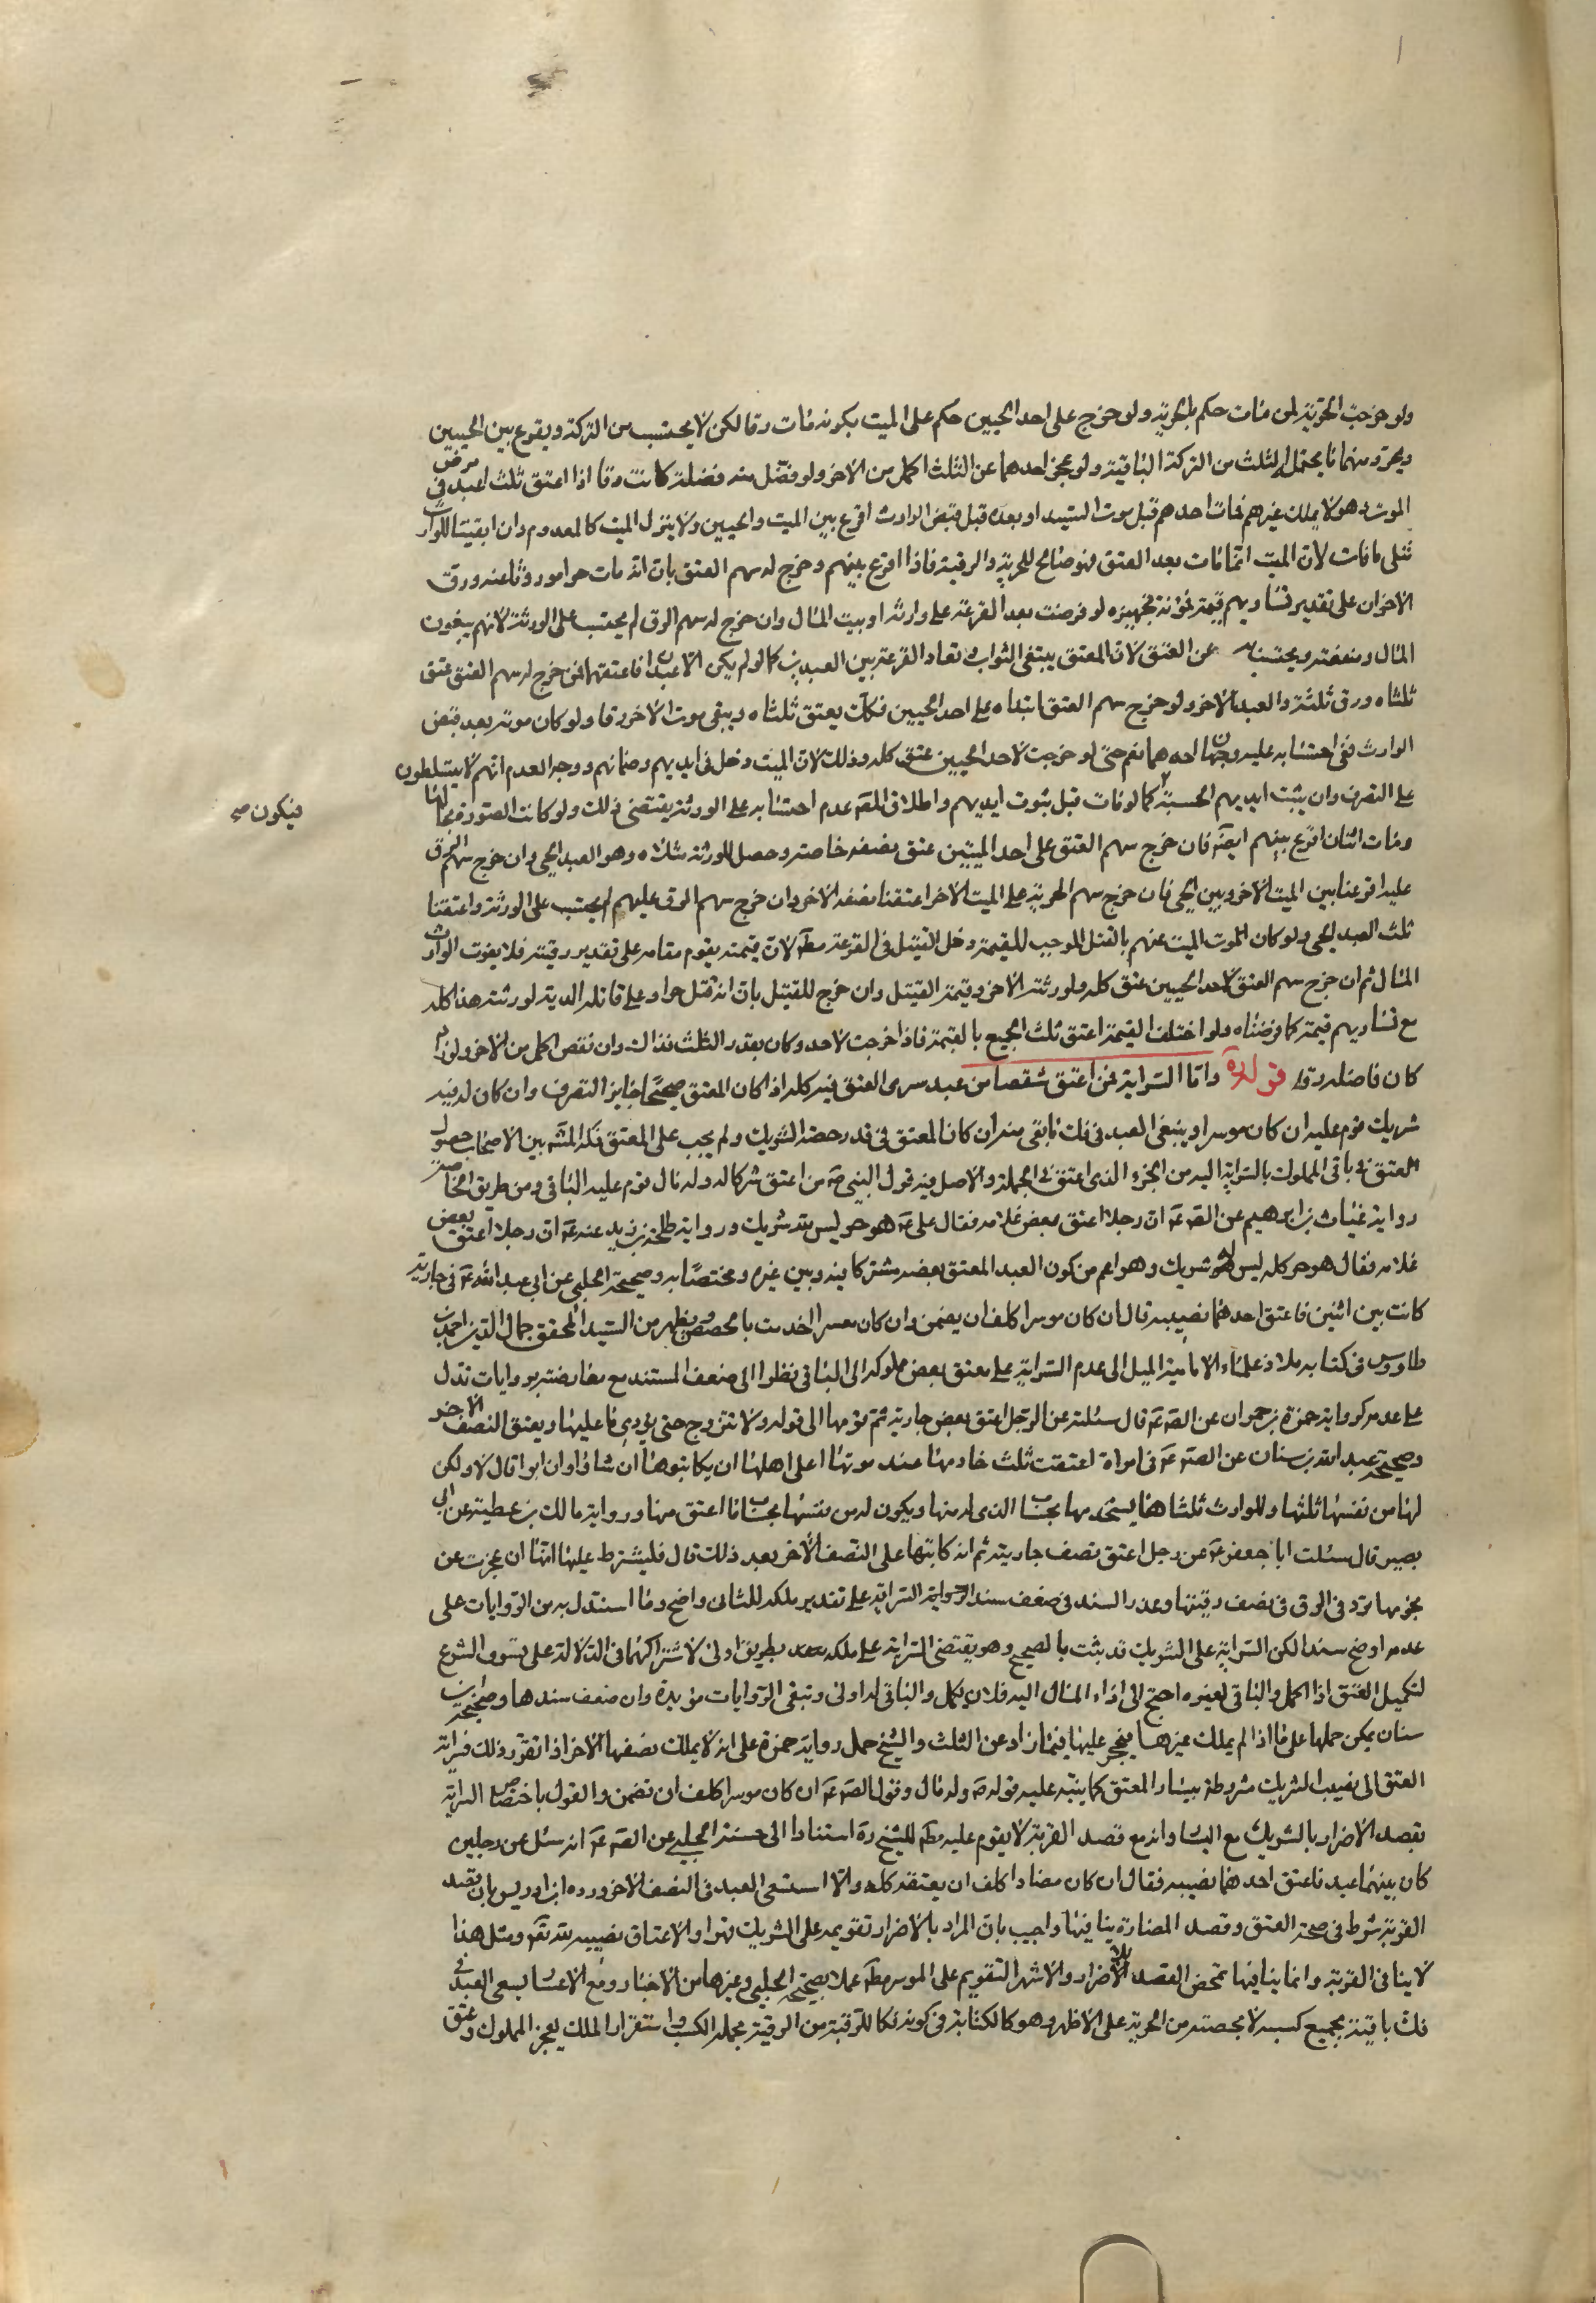 ولو خرجت الحرية لمن مات حكم بالحرية ولو خرج على احد الحيين حكم على الميت بكونه مات رقا لكن لا يحتسب من التركة ويقرع بين الحيين
ويحرر منهما ما يحتمله الثلث من التركة الباقية ولو عجز احدهما عن الثلث اكمل من الاخر ولو فضل منه فضلة كانت رقا اذا اعتق ثلث اعبد في مرض
الموت وهو لا يملك غيرهم فمات احدهم قبل موت السيد او بعده قبل قبض الوارث اقرع بين الميت والحيين ولا ينزل الميت كالمعدوم وان ابقينا للوارث
مثلي ما فات لان الميت انما مات بعد العتق فهو صالح للحرية والرقية فاذا اقرع بينهم وخرج له سهم العتق بان انه مات حرا موروثا عنه ورق
الاخران على تقدير تساويهم قيمة فمؤنة تجهيزه لو فرضت بعد القرعة على وارثه او بيت المال وان خرج له سهم الرق لم يحتسب على الورثة لانهم يبغون
المال ومنفعته ويحتسب عن العتق لان المعتق يبتغي الثواب وتعاد القرعة بين العبدين كما لو لم يكن الا عبدان فاعتقهما فمن خرج له سهم العتق عتق
ثلثاه ورق ثلثه والعبد الاخر ولو خرج سهم العتق ابتداء على احد الحيين فكذلك يعتق ثلثاه ويبقى موت الاخر رقا ولو كان موته بعد قبض
الوارث ففي احتسابه عليه وجهان احدهما نعم حتى لو خرجت لاحد الحيين عتق كله وذلك لان الميت دخل في ايديهم وضمانهم ووجه العدم انهم لا يتسلطون
على التصرف وان يثبت ايديهم الحسية كما لو مات قبل ثبوت ايديهم واطلاق المصه عدم احتسابه على الورثة يقتضي ذلك ولو كانت الصورة بحالها
ومات اثنان اقرع بينهم ايضه فان خرج سهم العتق على احد الميتين عتق نصفه خاصة وحصل للورثة مثلاه وهو العبد الحي وان خرج سهم الرق
فيكون صح
عليه اقرعنا بين الميت الاخر وبين الحي فان خرج سهم الحرية على الميت الاخر اعتقنا نصفه الاخر وان خرج سهم الرق عليهم لم يحتسب على الورثة واعتقنا
ثلث العبد الحي ولو كان الموت الميت عنهم بالقتل الموجب للقيمة دخل القتيل في القرعة مطه لان قيمته يقوم مقامه على تقدير رقيته فلا يفوت الوارث
المال ثم ان خرج سهم العتق لاحد الحيين عتق كله ولورثته الاخر وقيمة القتيل وان خرج للقتيل بان انه قتل حرا وعلى قاتله الدية لورثته هذا كله
مع تساويهم قيمة كما فرضناه ولو اختلف القيمة اعتق ثلث الجميع بالقيمة فاذا خرجت لاحد وكان بقدر الثلث فذاك وان نقص اكمل من الاخر ولو زاد
كان فاضله رقا قوله ره واما السراية فمن اعتق شقصا من عبد سرى العتق فيه كله اذا كان المعتق صحيحا جايز التصرف وان كان له فيه
شريك قوم عليه ان كان موسرا وينبغي العبد في فك ما بقى منه ان كان المعتق في قدر حصة الشريك ولم يجب على المعتق فكه المشه بين الاصحاب حصول
العتق في باقي المملوك بالسراية اليه من الجزء الذي اعتق في الجملة والاصل فيه قول النبي صه من اعتق شركا له وله مال قوم عليه الباقي ومن طريق الخاصة
رواية غياث بن ابرهيم عن الصه عه ان رجلا اعتق بعض غلامه فقال على عه هو حر ليس لله شريك ورواية طلحة بن زيد عنه عه ان رجلا اعتق بعض
غلامه فقال هو حر كله ليس لله شريك وهو اعم من كون العبد المعتق بعضه مشتركا بينه وبين غيره ومختصا به وصحيحة الحلبي عن ابي عبد الله عه في جارية
كانت بين اثنين فاعتق احدهما نصيبه قال ان كان موسرا كلف ان يضمن وان كان معسرا اخدمت بالحصص ويظهر من السيد المحقق جمال الدين احمد بن
طاووس في كتابه ملاذ علماء الامامية الميل الى عدم السراية على معتق بعض مملوكه الى الباقي نظرا الى ضعف المستند مع معارضته بروايات تدل
على عدمه كرواية حمزة بن حمران عن الصه عه قال سئلته عن الرجل اعتق بعض جارية ثم قومها الى قوله ولا تتزوج حتى يؤدي ما عليها ويعتق النصف الاخر
وصحيحة عبد الله بن سنان عن الصه عه في امراة اعتقت ثلث خادمها عند موتها اعلى اهلها ان يكاتبوها ان شاؤا وان ابوا قال لا ولكن
لها من نفسها ثلثها وللوارث ثلثاها يستخدمها بحساب الذي له منها ويكون لها من نفسها بحساب ما اعتق منها ورواية مالك بن عطية عن ابي
بصير قال سئلت ابا جعفر عه عن رجل اعتق نصف جاريته ثم انه كاتبها على النصف الاخر بعد ذلك قال فليشترط عليها انها ان عجزت عن
نجومها ترد في الرق في نصف رقبتها وعذر السند في ضعف سند الرواية السراية على تقدير ملكه للثاني واضح وما استدل به من الروايات على
عدمه اوضح سندا لكن السراية على الشريك قد ثبت بالصحيح وهو يقتضي السراية على ملكه بطريق اولى لاشتراكهما في الدلالة على تشوف الشرع
لتكميل العتق اذا اكمل والباقي لغيره احتج الى اداء المال اليه فلان يكمل والباقي له اولى وتبقى الروايات مؤيدة وان ضعف سندها وصحيحة ابن
سنان يمكن حملها على ما اذا لم يملك غيرها فيحجر عليها فيما زاد عن الثلث والشيخ حمل رواية حمزة على انه لا يملك نصفها الاخر اذا تقرر ذلك فسراية
العتق الى نصيب الشريك مشروطة بيسار المعتق كما ينبه عليه قوله صه وله مال وقول الصه عه ان كان موسرا كلف ان تضمن والقول باختصاص السراية
بقصد الاضرار بالشريك مع اليسار وانه مع قصد القربة لا يقوم عليه مطه للشيخ ره استنادا الى حسنة الحلبي عن الصه عه انه سئل عن رجلين
كان بينهما عبد فاعتق احدهما نصيبه فقال ان كان مضارا كلف ان يعتقه كله والا استسعى العبد في النصف الاخر ورده ابن ادريس بان قصد
القربة شرط في صحة العتق وقصد المضارة ينافيها واجيب بان المراد بالاضرار تقويمه على الشريك قهرا والاعتاق نصيبه لله تعه ومثل هذا
لا ينافي القربة وانما ينافيها تمحض القصد للاضرار والاشهر التقويم على الموسر مطه عملا بصحيحة الحلبي وغيرها من الاخبار ومع الاعسار يسعى العبد في
فك باقيته بجميع كسبه لا بحصته من الحرية على الاظهر وهو كالكتابة في كونه فكا للرقبة من الرقية بجملة الكسب واستقرار الملك لعجز المملوك وعتق